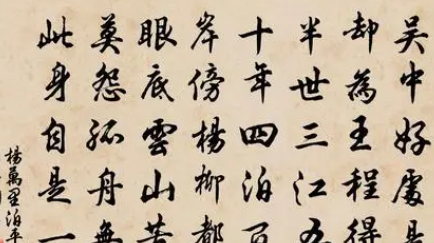 吳中好處是
却為王程得
半世三江五
十年四泊百
岸傍楊柳都
眼底雲山苦
莫怨孤舟無
此身自是一
楊萬里泊平